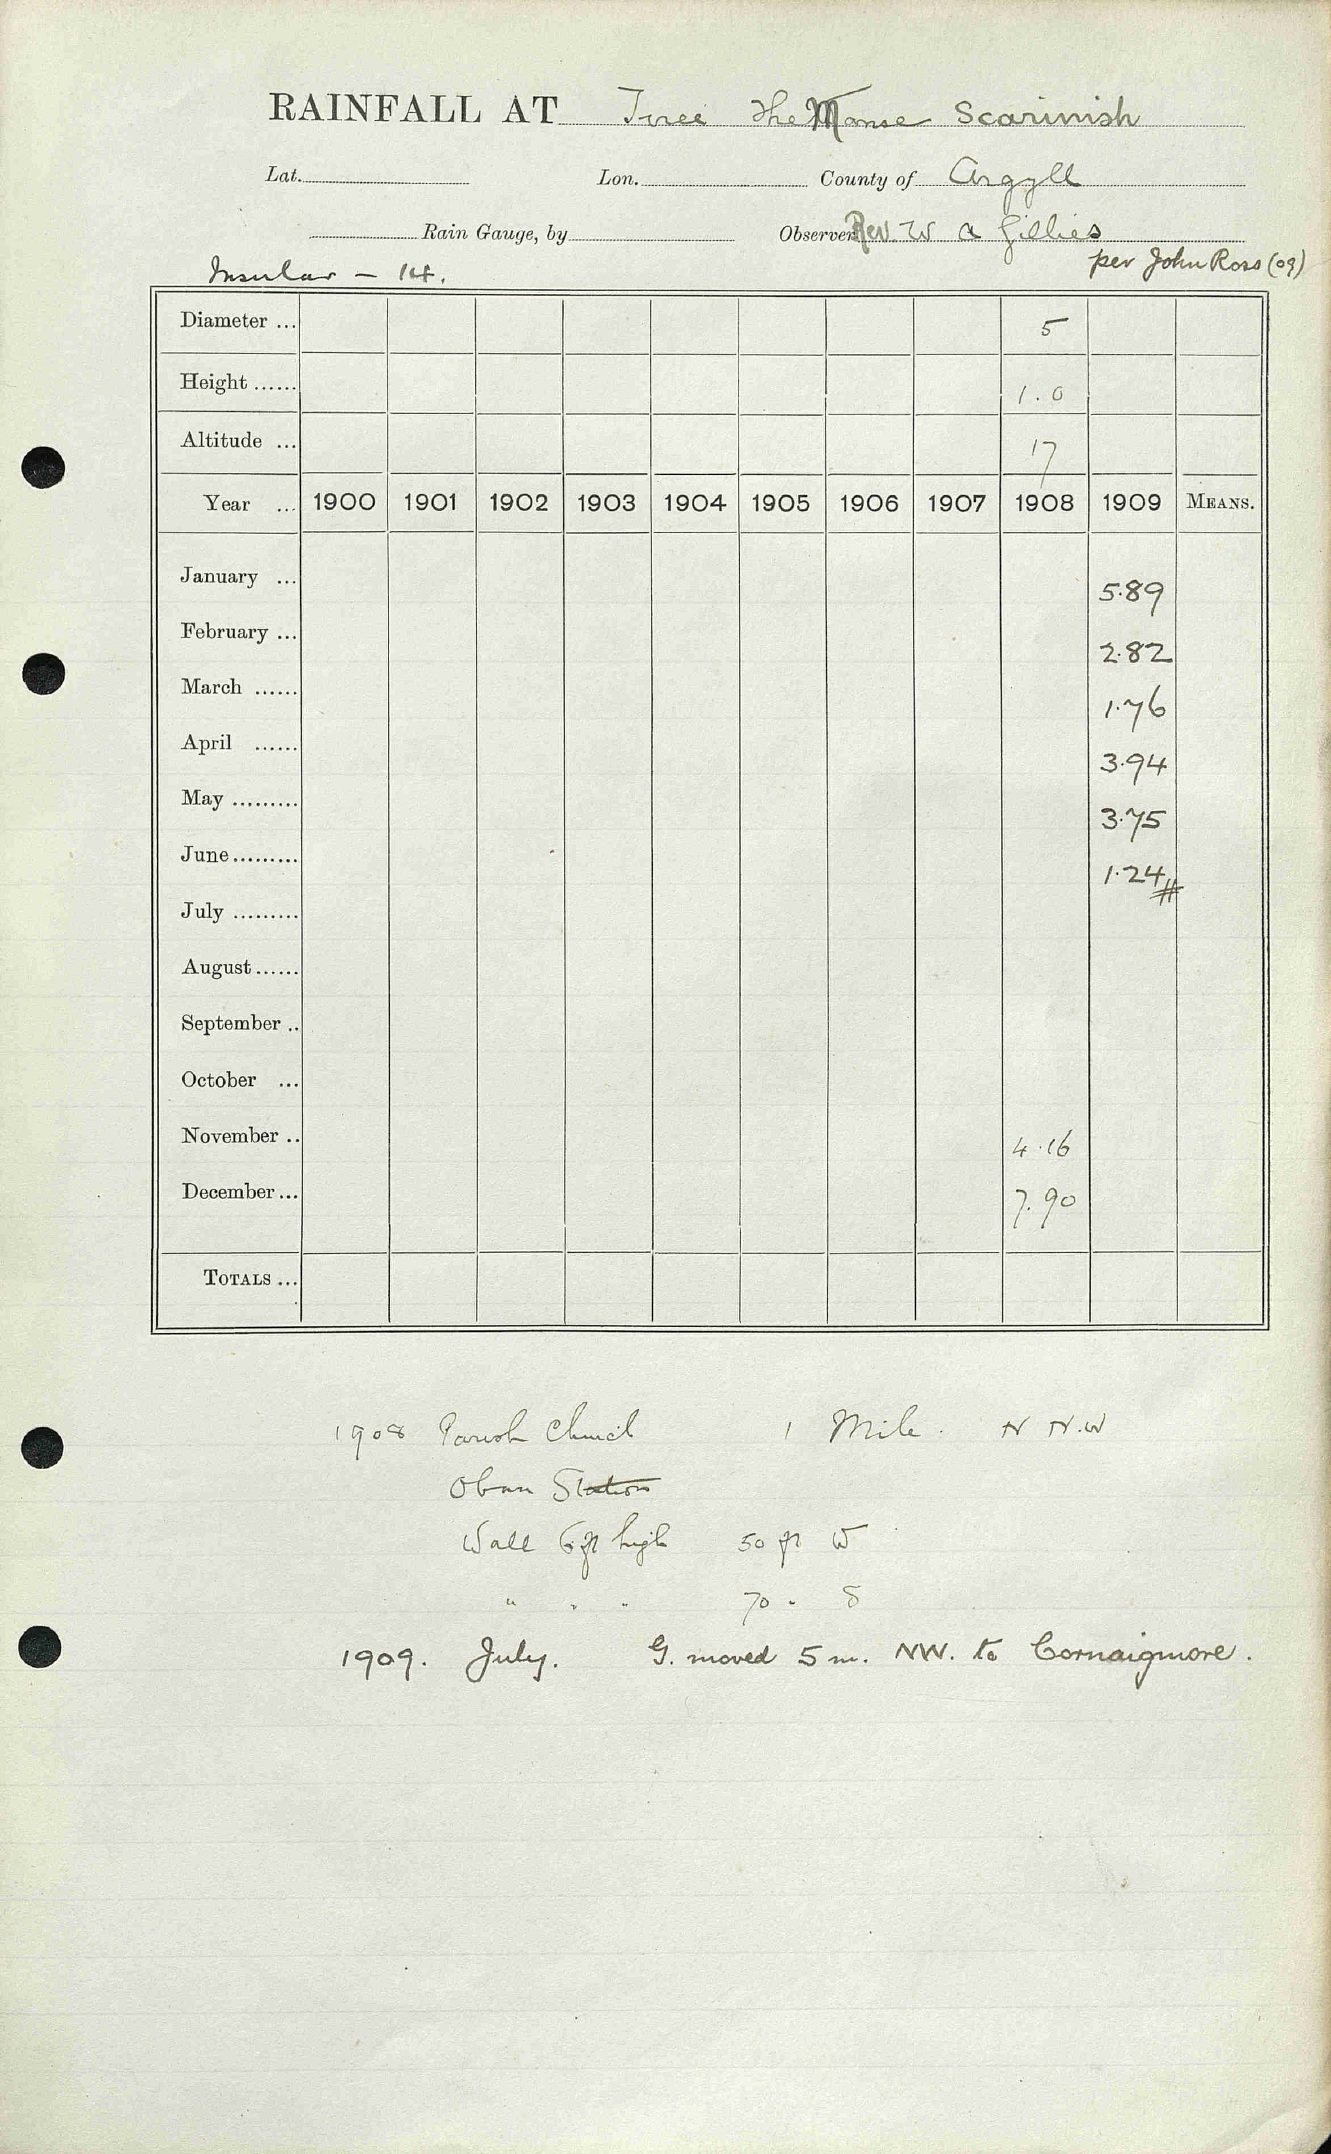 RAINFALL AT Tiree The Manse Scarinish
Lat. Lon. County of Argyll
Rain Gauge, by Observer Rev. W A Gillies
Insular – 14. per John Ross (09)
Diameter ... 5
Height ...... 1.0
Altitude ... 17
Year ... 1900 1901 1902 1903 1904 1905 1906 1907 1908 1909 MEANS.
January ... 5.89
February ... 2.82
March ...... 1.76
April ...... 3.94
May ......... 3.75
June ......... 1.24 #
July .........
August ......
September ..
October ...
November .. 4.16
December ... 7.90
TOTALS ...
1908 Parish Church 1 Mile. N N.W
Oban Station
Wall 6 ft high 50 ft W
" " " 70 " S
1909. July. G. moved 5 m. NW. to Cornaigmore.